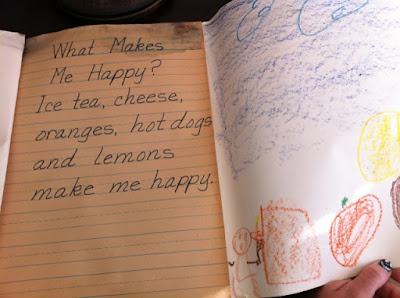 What Makes
Me Happy?
Ice tea, cheese,
oranges, hot dogs
and lemons
make me happy.